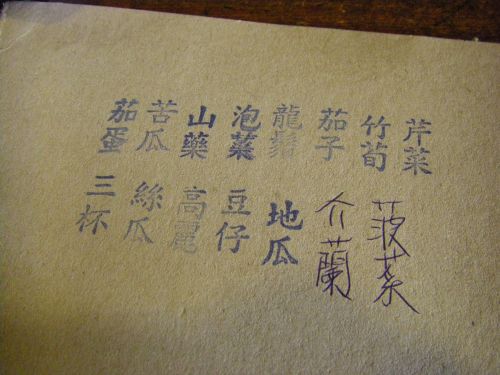 芹菜
竹筍
茄子
龍鬚
泡菜
山藥
苦瓜
茄蛋
菠菜
介蘭
地瓜
豆仔
高麗
絲瓜
三杯